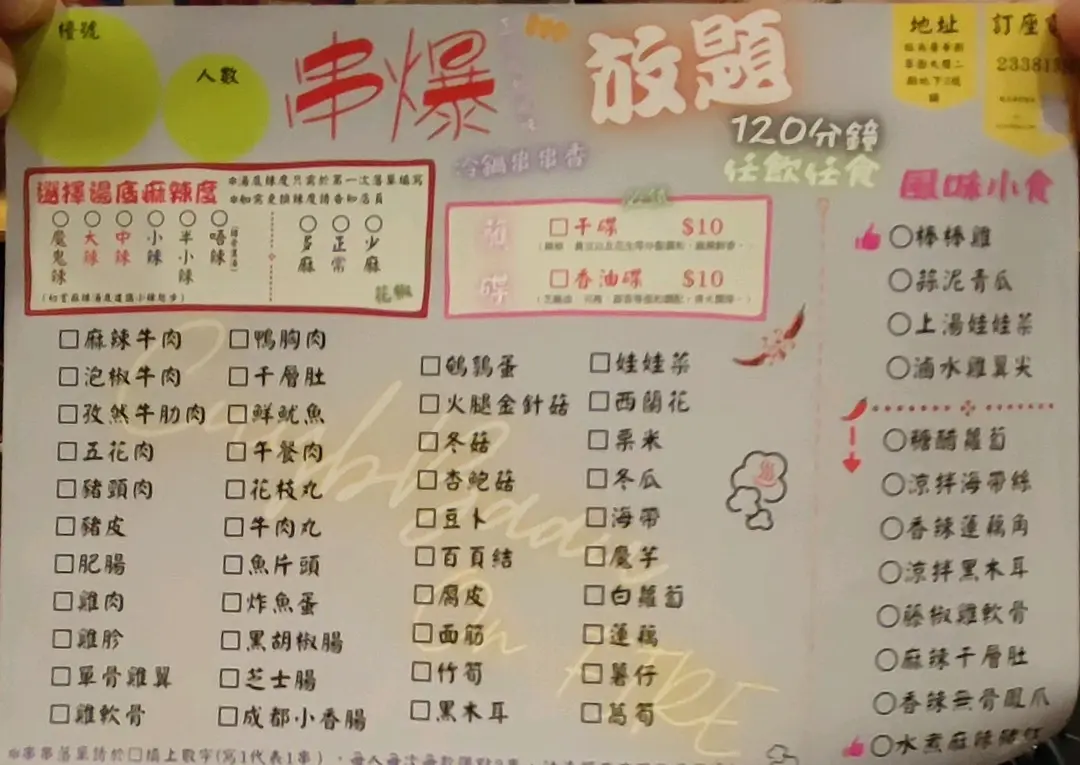 檯號
人數
串爆
放題
120分鐘
任飲任食
冷鍋串串香
地址
訂座
233813
選擇湯底麻辣度
*湯底辣度只需於第一次落單填寫
*如需更換辣度請告知店員
○魔鬼辣 ○大辣 ○中辣 ○小辣 ○半小辣 ○唔辣
○多麻 ○正常 ○少麻
花椒
□干碟 $10
□香油碟 $10
□麻辣牛肉
□泡椒牛肉
□孜然牛肋肉
□五花肉
□豬頸肉
□豬皮
□肥腸
□雞肉
□雞胗
□單骨雞翼
□雞軟骨
□鴨胸肉
□千層肚
□鮮魷魚
□午餐肉
□花枝丸
□牛肉丸
□魚片頭
□炸魚蛋
□黑胡椒腸
□芝士腸
□成都小香腸
□鵪鶉蛋
□火腿金針菇
□冬菇
□杏鮑菇
□豆卜
□百頁結
□腐皮
□面筋
□竹筍
□黑木耳
□娃娃菜
□西蘭花
□粟米
□冬瓜
□海帶
□魔芋
□白蘿蔔
□蓮藕
□薯仔
□萵筍
風味小食
○棒棒雞
○蒜泥青瓜
○上湯娃娃菜
○滷水雞翼尖
○糖醋蘿蔔
○涼拌海帶絲
○香辣蓮藕角
○涼拌黑木耳
○藤椒雞軟骨
○麻辣千層肚
○香辣無骨鳳爪
○水煮麻辣豬紅
*串串落單請於□填上數字(寫1代表1串)